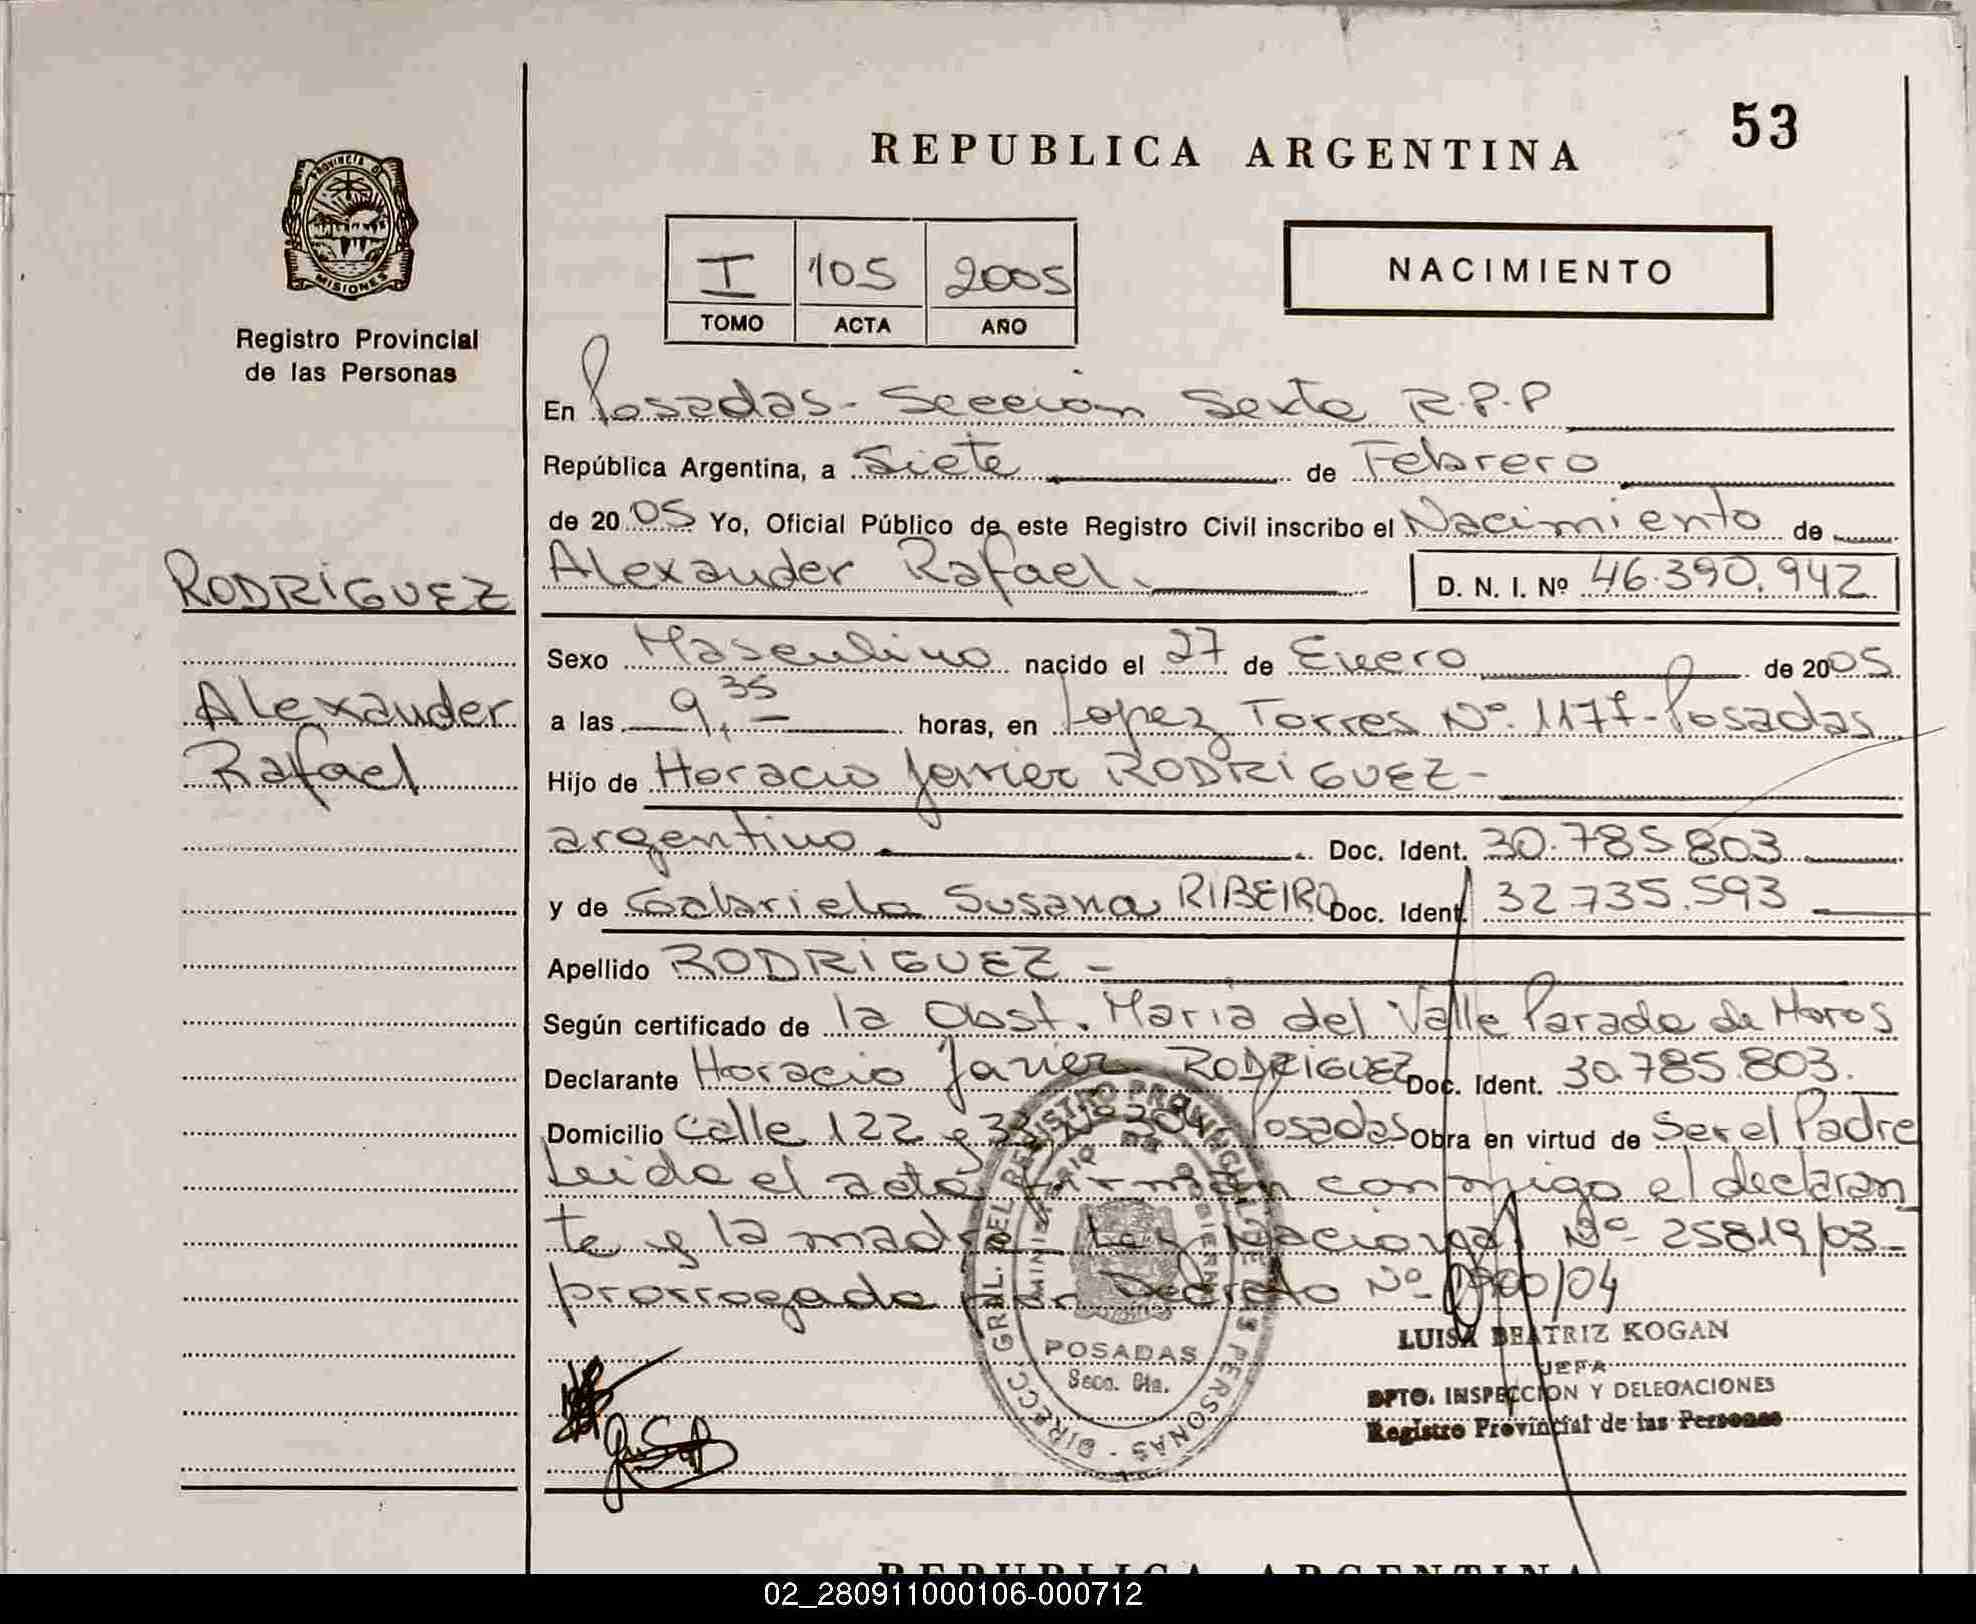 53
REPUBLICA ARGENTINA
PROVINCIA D
MISIONES
Registro Provincial
de las Personas
NACIMIENTO
I 105 2005
TOMO ACTA AÑO
En Posadas - Sección Sexta R.P.P
República Argentina, a Siete de Febrero
de 2005 Yo, Oficial Público de este Registro Civil inscribo el Nacimiento de
Alexander Rafael. D. N. I. Nº 46.390.942
RODRÍGUEZ
Alexander
Rafael
Sexo Masculino nacido el 27 de Enero de 2005
a las 9,35 horas, en Lopez Torres Nº 1177 - Posadas
Hijo de Horacio Javier RODRÍGUEZ -
argentino. Doc. Ident. 30.785.803
y de Gabriela Susana RIBEIRO Doc. Ident. 32.735.593
Apellido RODRÍGUEZ -
Según certificado de la Obst. María del Valle Parada de
Declarante Horacio Javier RODRÍGUEZ Doc. Ident. 30.785.803.
Domicilio Calle 122 y 33 Nº 304 Posadas Obra en virtud de Ser el Padre
Leida el acta firman conmigo el declaran
te y la madre Ley Nacional Nº 25819/03 -
prorrogada por Decreto Nº /04
DIRECC. GRAL. DEL REGISTRO PROVINCIAL DE LAS PERSONAS
MINISTERIO DE GOBIERNO
POSADAS
Secc. 6ta.
LUISA BEATRIZ KOGAN
JEFA
DPTO. INSPECCION Y DELEGACIONES
Registro Provincial de las Personas
REPUBLICA ARGENTINA
02_280911000106-000712